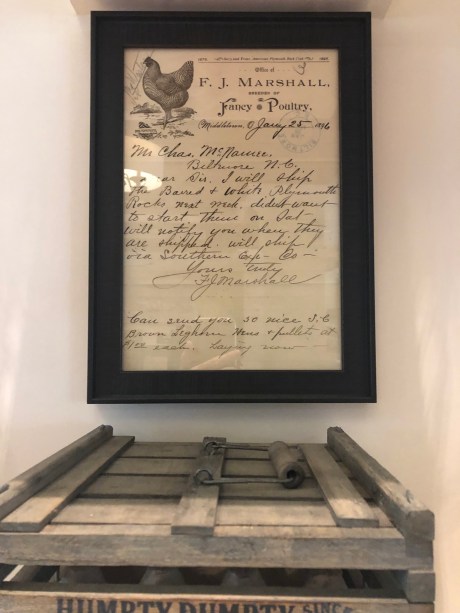 Office of
F. J. MARSHALL,
BREEDER OF
Fancy Poultry,
Middletown, O Jany 25 1896
Mr Chas. McNamee.
Biltmore N.C.
Dear Sir. I will ship
the Barred & White Plymouth
Rocks next week. didn't want
to start them on Sat—
will notify you when they
are shipped. will ship
via Southern Exp— Co—
Yours truly
F J Marshall
Can send you 50 nice S.C
Brown Leghorn Hens & pullets at
$1.00 each. Laying now —
HUMPTY DUMPTY SINCE